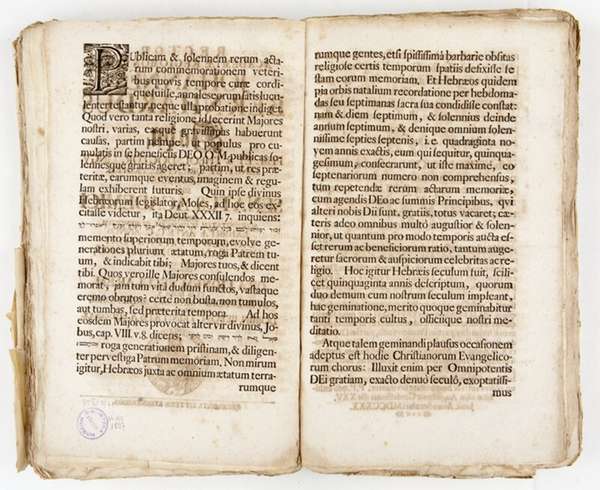 PUblicam & solennem rerum acta-
rum commemorationem veteri-
bus quovis tempore curæ cordi-
que fuisse, annales eorum satis lucu-
lenter testantur, neque ulla probatione indiget.
Quod vero tanta religione id fecerint Majores
nostri, varias, easque gravissimas habuerunt
causas, partim nempe, ut populus pro cu-
mulatis in se beneficiis DEO O.M. publicas so-
lennesque gratias ageret; partim, ut res præ-
teritæ, earumque eventus, imaginem & regu-
lam exhiberent futuris. Quin ipse divinus
Hebræorum legislator, Moses, ad hoc eos ex-
citasse videtur, ita Deut. XXXII 7. inquiens:
memento superiorum temporum, evolve ge-
nerationes plurium ætatum, roga Patrem tu-
um, & indicabit tibi; Majores tuos, & dicent
tibi. Quos vero ille Majores consulendos me-
morat, jam tum vita dudum functos, vastaque
eremo obrutos? certe non busta, non tumulos,
aut tumbas, sed præterita tempora. Ad hos
eosdem Majores provocat alter vir divinus, Jo-
bus, cap. VIII. v. 8. dicens;
roga generationem pristinam, & diligen-
ter pervestiga Patrum memoriam. Non mirum
igitur, Hebræos juxta ac omnium ætatum terra-
rumque
rumque gentes, etsi spississima barbarie obsitas
religiose certis temporum spatiis defixisse fe-
stam eorum memoriam. Et Hebræos quidem
pia orbis natalium recordatione per hebdoma-
das seu septimanas sacra sua condidisse constat:
nam & diem septimum, & solennius deinde
annum septimum, & denique omnium solen-
nissime septies septenis, i.e. quadraginta no-
vem annis exactis, eum qui sequitur, quinqua-
gesimum, consecrarunt, ut iste maxime, eo
septenariorum numero non comprehensus,
tum repetendæ rerum actarum memoriæ,
cum agendis DEo ac summis Principibus, qvi
alteri nobis Dii sunt, gratiis, totus vacaret; cæ-
teris adeo omnibus multo augustior & solen-
nior, ut quantum pro modo temporis aucta es-
set rerum ac beneficiorum ratio, tantum auge-
retur sacrorum & auspiciorum celebritas ac re-
ligio. Hoc igitur Hebræis seculum fuit, scili-
cet quinquaginta annis descriptum, quorum
duo demum cum nostrum seculum impleant,
hac geminatione, merito quoque geminabitur
tanti temporis cultus, officiique nostri me-
ditatio.
Atque talem geminandi plausus occasionem
adeptus est hodie Christianorum Evangelico-
rum chorus: Illuxit enim per Omnipotentis
DEi gratiam, exacto denuo seculô, exoptatissi-
mus